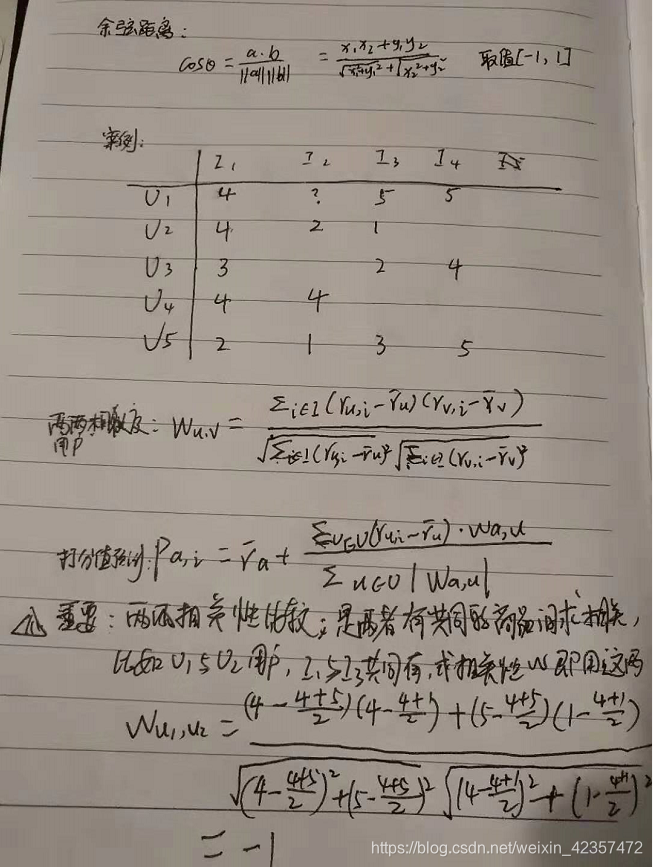 余弦距离:
cosθ = a·b / ||a|| ||b|| = x₁x₂+y₁y₂ / √x₁²+y₁² + √x₂²+y₂² 取值[-1, 1]
案例:
I₁ I₂ I₃ I₄
U1 4 ? 5 5
U2 4 2 1
U3 3 2 4
U4 4 4
U5 2 1 3 5
两两相似度: Wu,v = Σi∈I (ru,i - r̄u)(rv,i - r̄v) / √Σi∈I(ru,i - r̄u)² √Σi∈I(rv,i - r̄v)²
用户
打分值预测: Pa,i = r̄a + Σu∈U(ru,i - r̄u)·wa,u / Σu∈U |wa,u|
重要: 两两相关性比较; 是两者有共同的商品间求相关,
比如U1与U2用户, I₁与I₃共同有, 求相关性W即用这两
Wu₁,u₂ = (4 - 4+5/2)(4 - 4+1/2) + (5 - 4+5/2)(1 - 4+1/2) / √(4 - 4+5/2)² + (5 - 4+5/2)² √(4 - 4+1/2)² + (1 - 4+1/2)²
= -1
https://blog.csdn.net/weixin_42357472